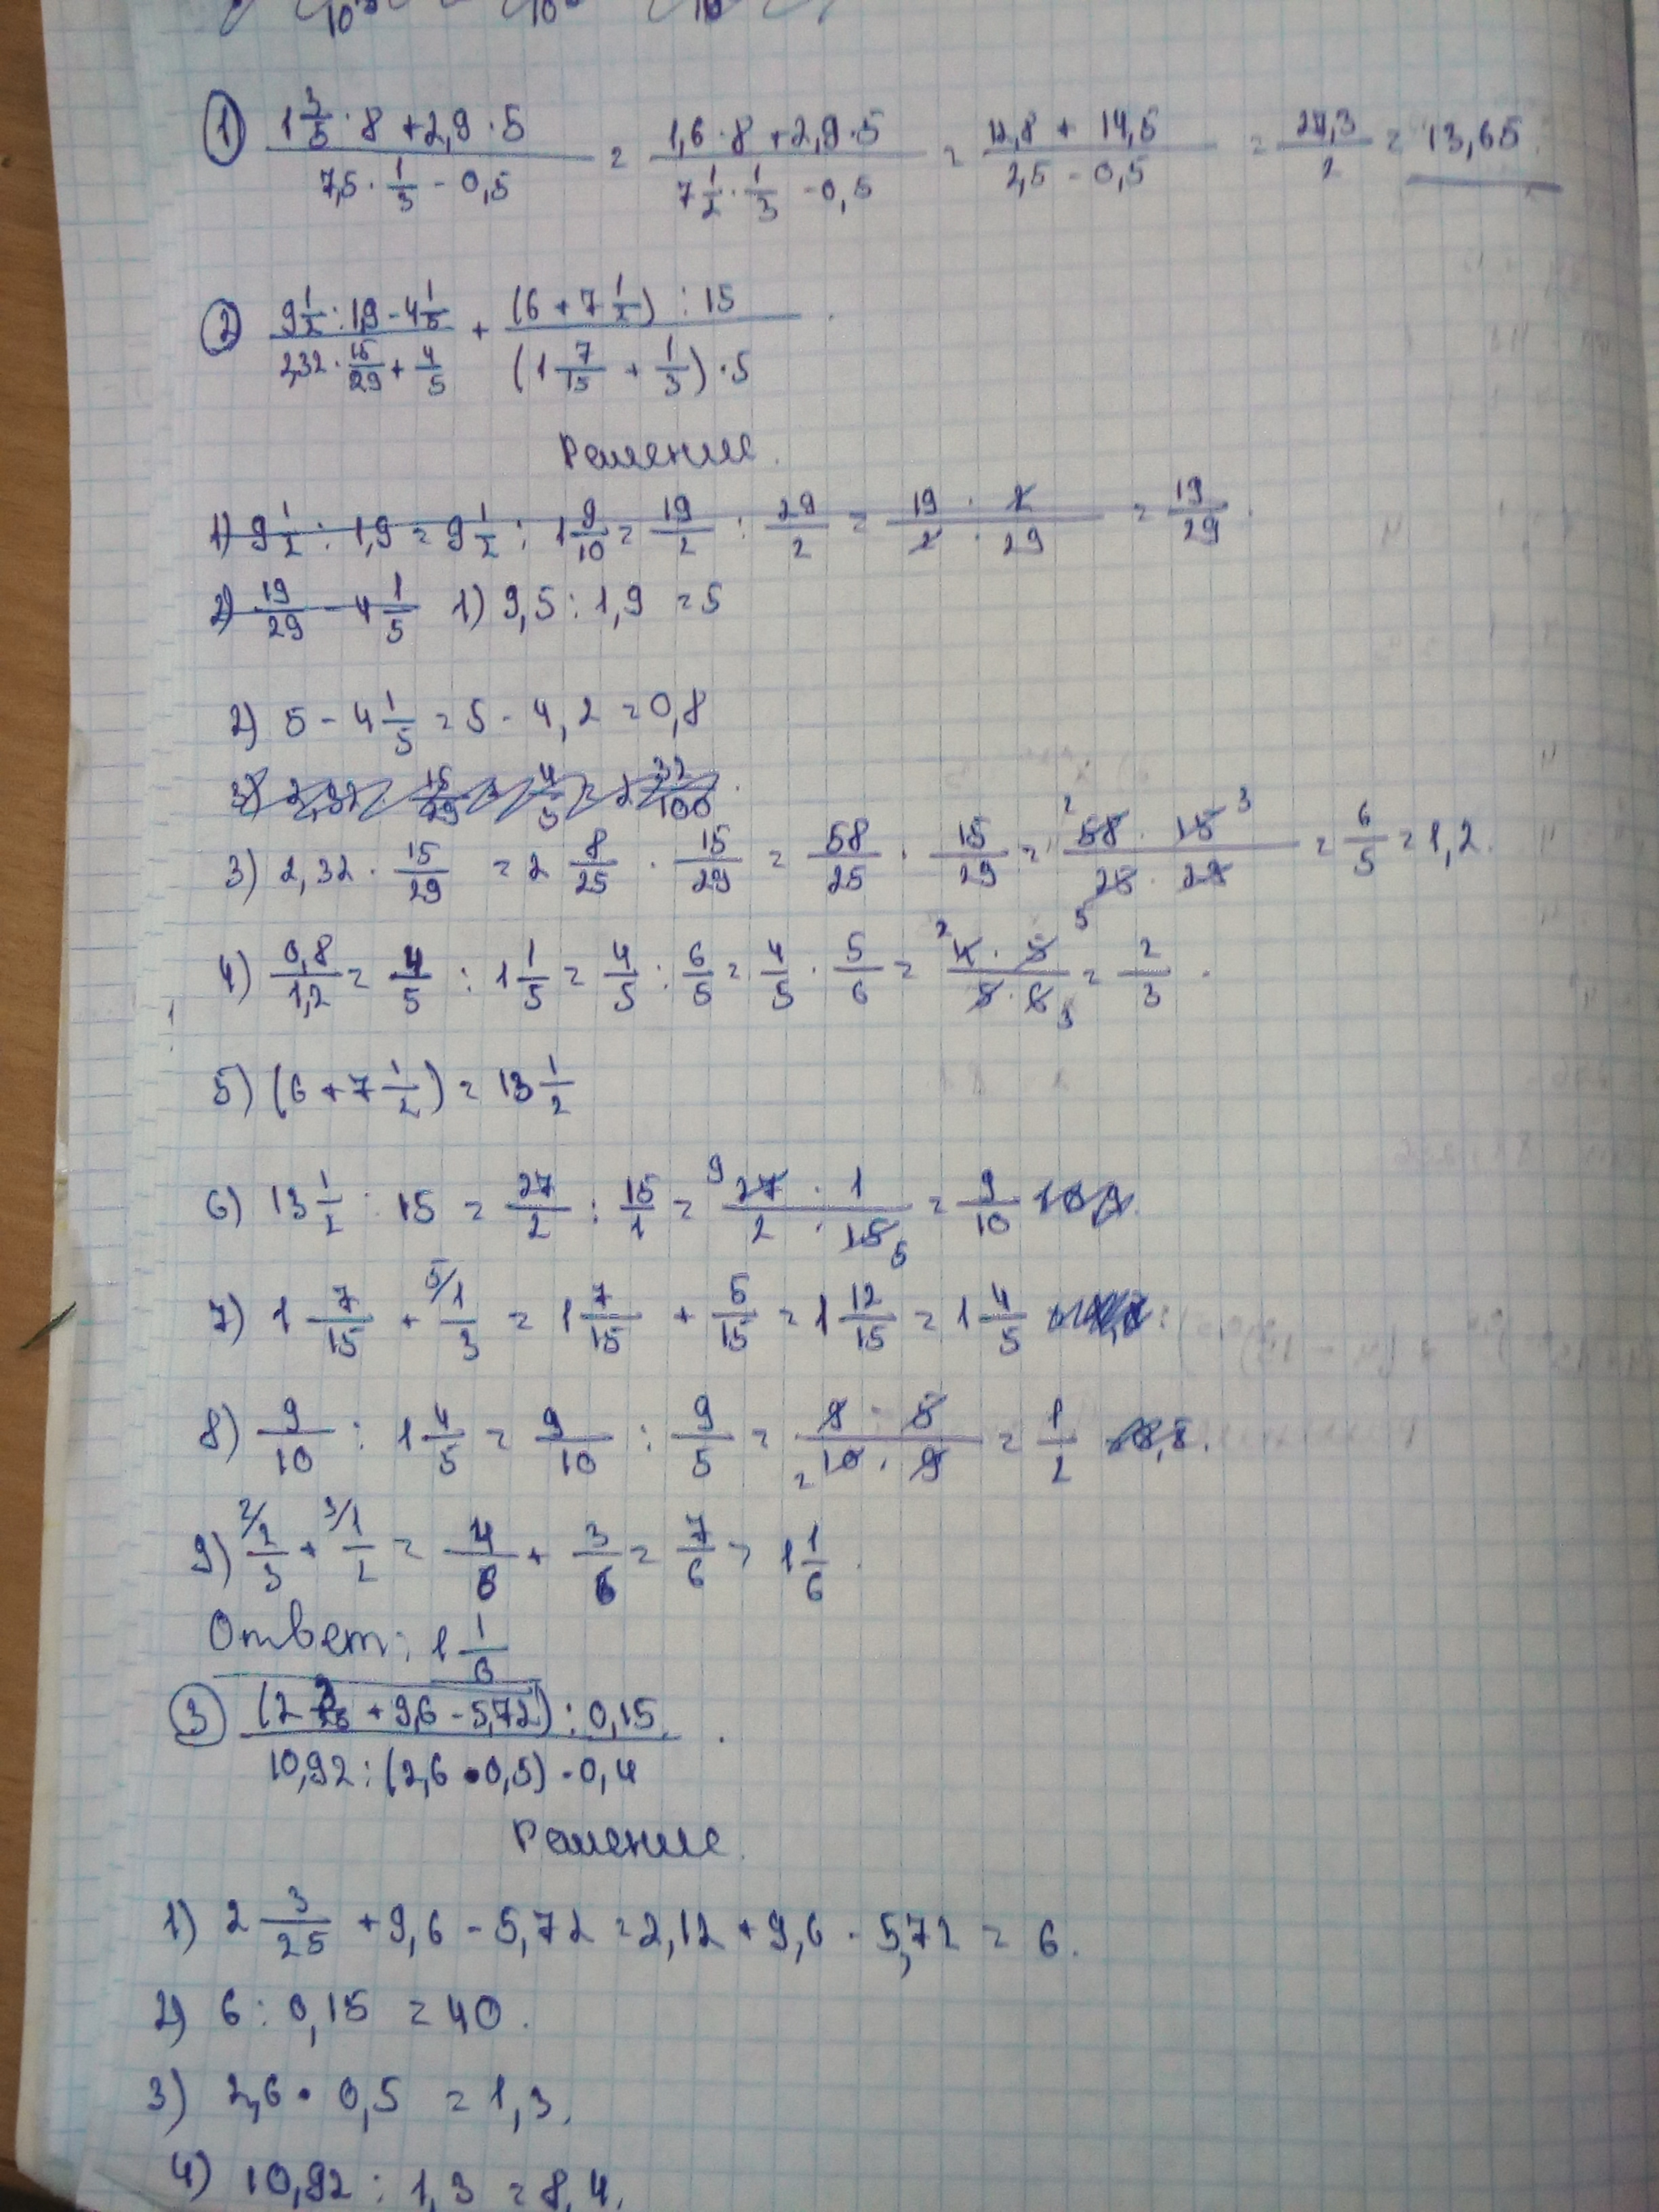 ① (1 3/5 · 8 + 2,9 · 5)/(7,5 · 1/3 - 0,5) = (1,6 · 8 + 2,9 · 5)/(7 1/2 · 1/3 - 0,5) = (12,8 + 14,5)/(2,5 - 0,5) = 27,3/2 = 13,65.
② (9 1/2 : 1,9 - 4 1/5)/(2,32 · 15/29 + 4/5) + ((6 + 7 1/2) : 15)/((1 7/15 + 1/3) · 5).
Решение.
1) 9 1/2 : 1,9 = 9 1/2 : 1 9/10 = 19/2 : 29/2 = (19 · 2)/(2 · 29) = 19/29.
2) 19/29 - 4 1/5 1) 9,5 : 1,9 = 5
2) 5 - 4 1/5 = 5 - 4,2 = 0,8
3) 2,32 · 15/29 = 2 8/25 · 15/29 = 58/25 · 15/29 = (58 · 15)/(25 · 29) = 6/5 = 1,2.
4) 0,8/1,2 = 4/5 : 1 1/5 = 4/5 : 6/5 = 4/5 · 5/6 = (4 · 5)/(5 · 6) = 2/3.
5) (6 + 7 1/2) = 13 1/2
6) 13 1/2 : 15 = 27/2 : 15/1 = (27 · 1)/(2 · 15) = 9/10
7) 1 7/15 + 1/3 = 1 7/15 + 5/15 = 1 12/15 = 1 4/5
8) 9/10 : 1 4/5 = 9/10 : 9/5 = (9 · 5)/(10 · 9) = 1/2
9) 2/3 + 1/2 = 4/6 + 3/6 = 7/6 = 1 1/6.
Ответ: 1 1/6
③ ((2 3/25 + 9,6 - 5,72) : 0,15)/(10,92 : (2,6 · 0,5) - 0,4).
Решение.
1) 2 3/25 + 9,6 - 5,72 = 2,12 + 9,6 - 5,72 = 6.
2) 6 : 0,15 = 40.
3) 2,6 · 0,5 = 1,3.
4) 10,92 : 1,3 = 8,4.